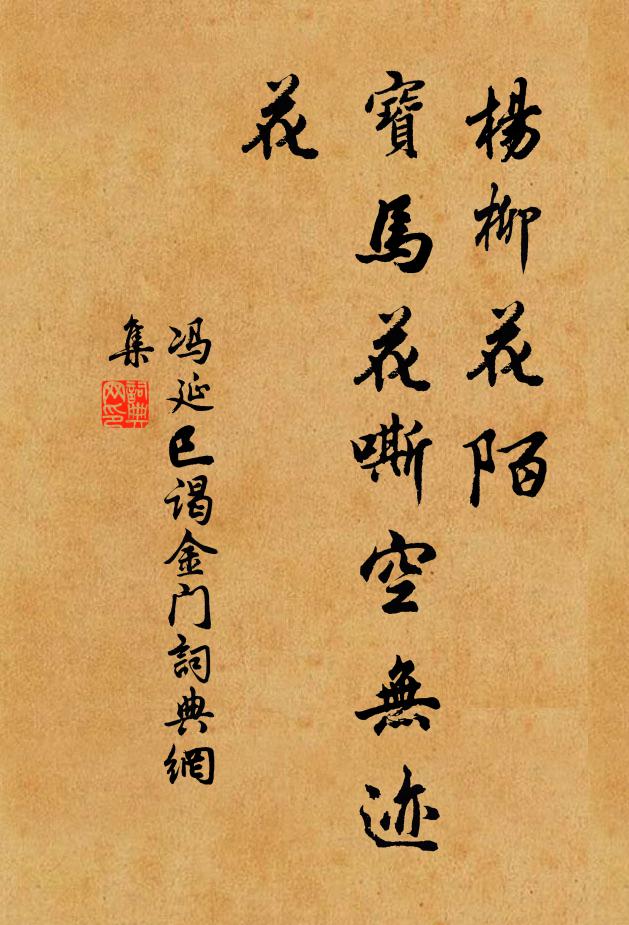 楊柳花陌
寶馬花嘶空無迹
花
冯延巳谒金门詞典網
集
詞典網印